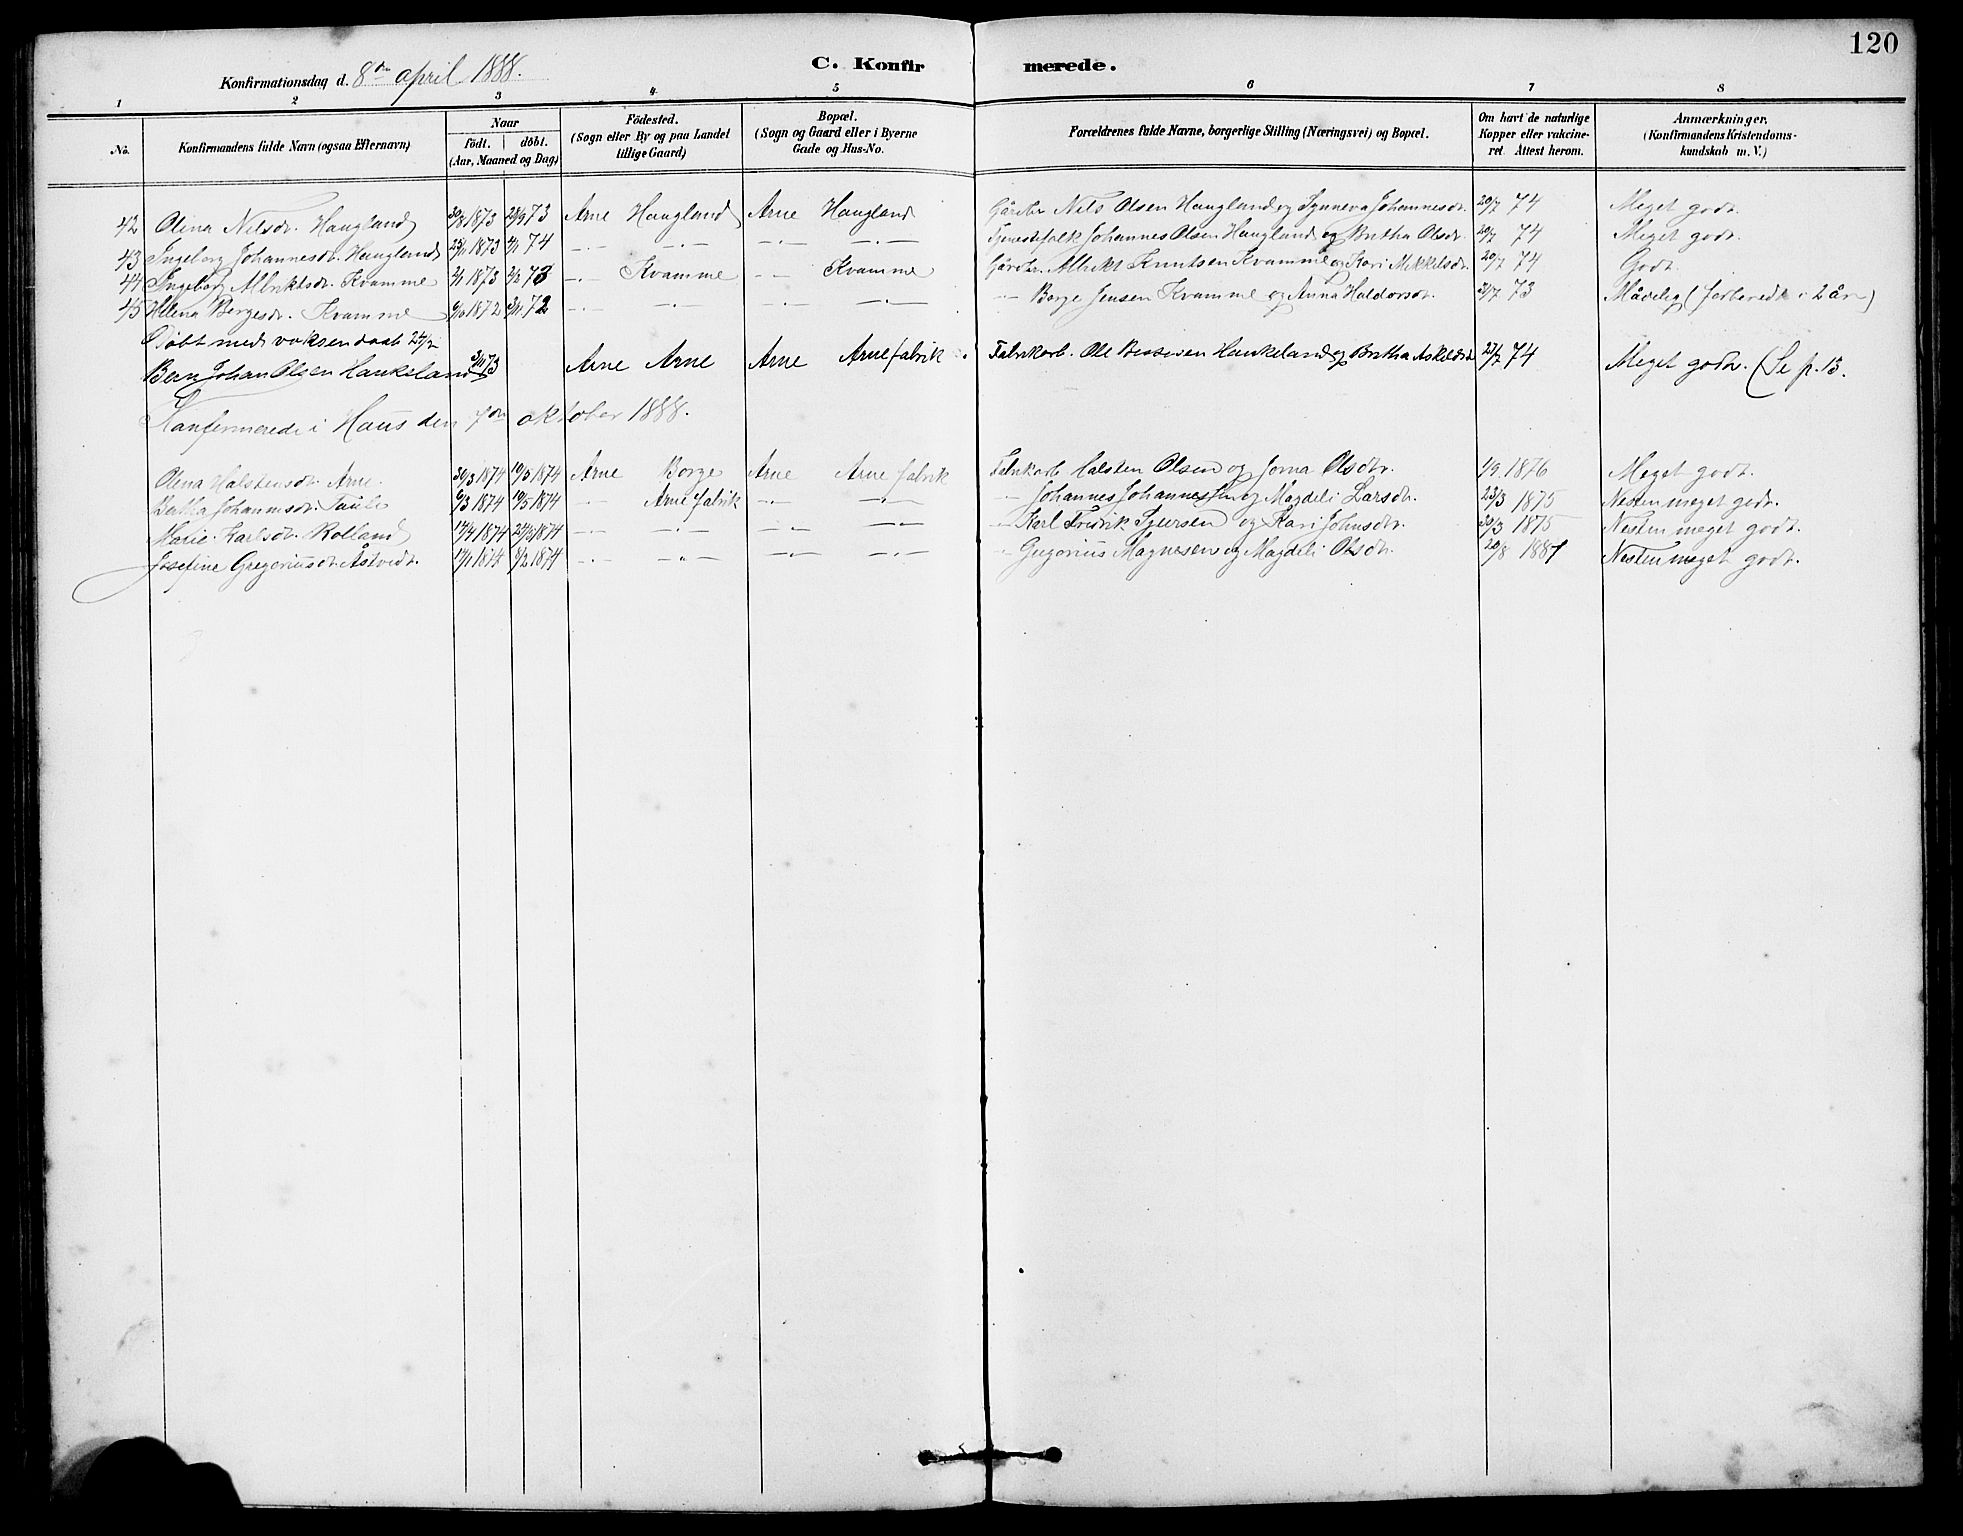 120
Konfirmationsdag d. 8de april 1888. C. Konfirmerede.
1 2 3 4 5 6 7 8
No. Konfirmandens fulde Navn (ogsaa Efternavn) Naar født. døbt. (Aar, Maaned og Dag) Fødested. (Sogn eller By og paa Landet tillige Gaard) Bopæl. (Sogn og Gaard eller i Byerne Gade og Hus-No. Forældrenes fulde Navne, borgerlige Stilling (Næringsvei) og Bopæl. Om havt de naturlige Kopper eller vakcineret. Attest herom. Anmærkninger. (Konfirmandens Kristendomskundskab m. V.)
42 Olina Nilsdr. Haugland 30/8 1873 28/9 73 Arne Haugland Arne Haugland Gårdbr. Nils Olsen Haugland og Synneva Johannesdr. 20/7 74 Meget godt.
43 Ingeborg Johannesdr. Haugland 25/11 1873 4/1 74 -„- -„- -„- -„- Tjenestefolk Johannes Olsen Haugland og Britha Olsdr. 20/7 74 Meget godt.
44 Ingeborg Albriktsdr. Kvamme 2/1 1873 2/2 73 -„- Kvamme -„- Kvamme Gårdbr. Albrikt Knutsen Kvamme og Kari Mikkelsdr. 20/7 74 Godt.
45 Helena Børgesdr. Kvamme 1872 72 -„- -„- -„- Børge Jensen Kvamme og Anna Haldorsdr. 21/7 73 Mådelig (forberedt i 2 år)
Døbt med voksendaab 24/2
Bern Johan Olsen Haukeland 3/11 73 Arne Arne Arne Arne fabrik Fabrikarb. Ole Haukeland og Britha Askildsd 23/7 74 Meget godt. (Se p. 13.
Konfirmerede i Haus den 7de oktober 1888.
Olena Halstensdr. Arne. 30/3 1874 10/5 1874 Arne Borge Arne Arne fabrik Fabrikarb. Halsten Olsen og Jorna Olsdtr. 1/9. 1876 Meget godt.
Bertha Johannsdr. 6/3 1874 10/5 1874 -„- Arne fabrik -„- -„- -„- Johannes Johannessen og Magdeli Larsdr. 23/3 1875 Nesten meget godt.
Marie Karlsdr. Rolland 17/4 1874 25/5 1874 -„- -„- -„- -„- -„- Karl Fredrik Sjursen og Kari Johnsdtr. 30/3 1875 Nesten meget godt.
Josefine Gregoriusdr. Åstvedt. 17/1 1874 8/2 1874 -„- -„- -„- -„- -„- Gregorius Magnesen og Magdeli Olsdr. 20/8 1881 Nesten meget godt.